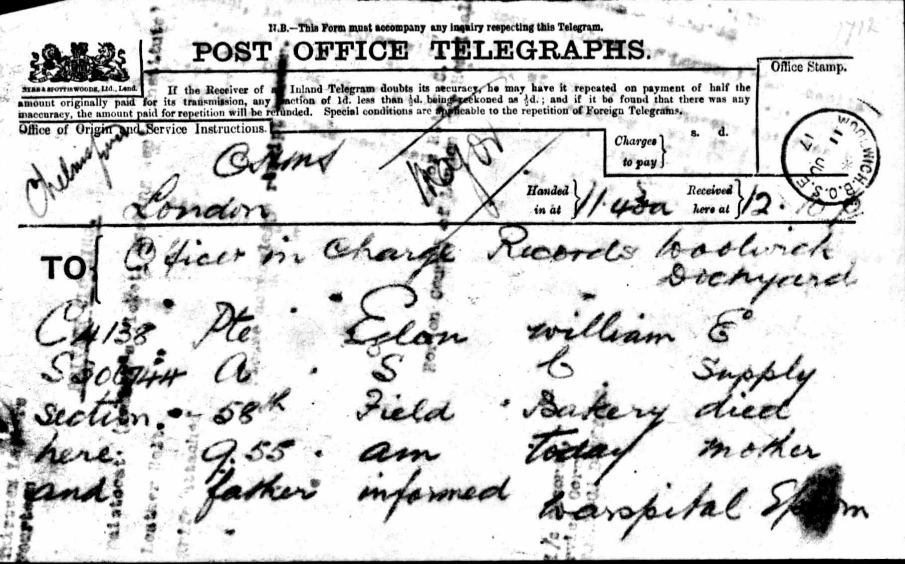 N.B.—This Form must accompany any inquiry respecting this Telegram.
POST OFFICE TELEGRAPHS.
EYRE & SPOTTISWOODE, Ltd., Lond.
If the Receiver of an Inland Telegram doubts its accuracy, he may have it repeated on payment of half the
amount originally paid for its transmission, any fraction of 1d. less than ½d. being reckoned as ½d.; and if it be found that there was any
inaccuracy, the amount paid for repetition will be refunded. Special conditions are applicable to the repetition of Foreign Telegrams.
Office Stamp.
Office of Origin and Service Instructions.
London
Charges to pay
s. d.
Handed in at
Received here at
WOOLWICH B.O. S.E
11 JU 17
TO Officer in Charge Records Woolwich
Dockyard
C 4138 Pte Eglon William E
A S C Supply
section. 58th Field Bakery died
here 9.55 am today mother
and father informed
Warspital Epsom